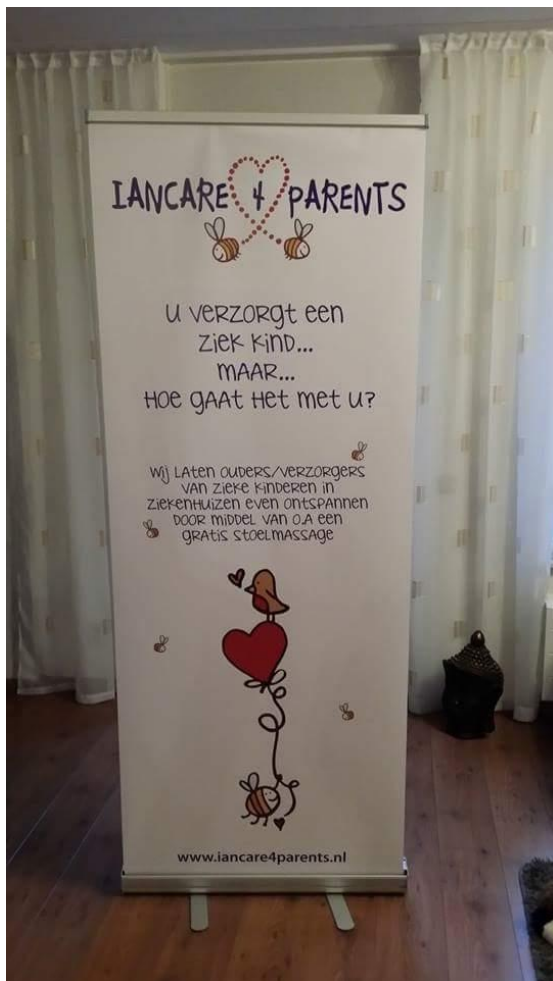 IANCARE 4 PARENTS
U VERZORGT EEN
ZIEK KIND...
MAAR...
HOE GAAT HET MET U?
WIJ LATEN OUDERS/VERZORGERS
VAN ZIEKE KINDEREN IN
ZIEKENHUIZEN EVEN ONTSPANNEN
DOOR MIDDEL VAN O.A EEN
GRATIS STOELMASSAGE
www.iancare4parents.nl